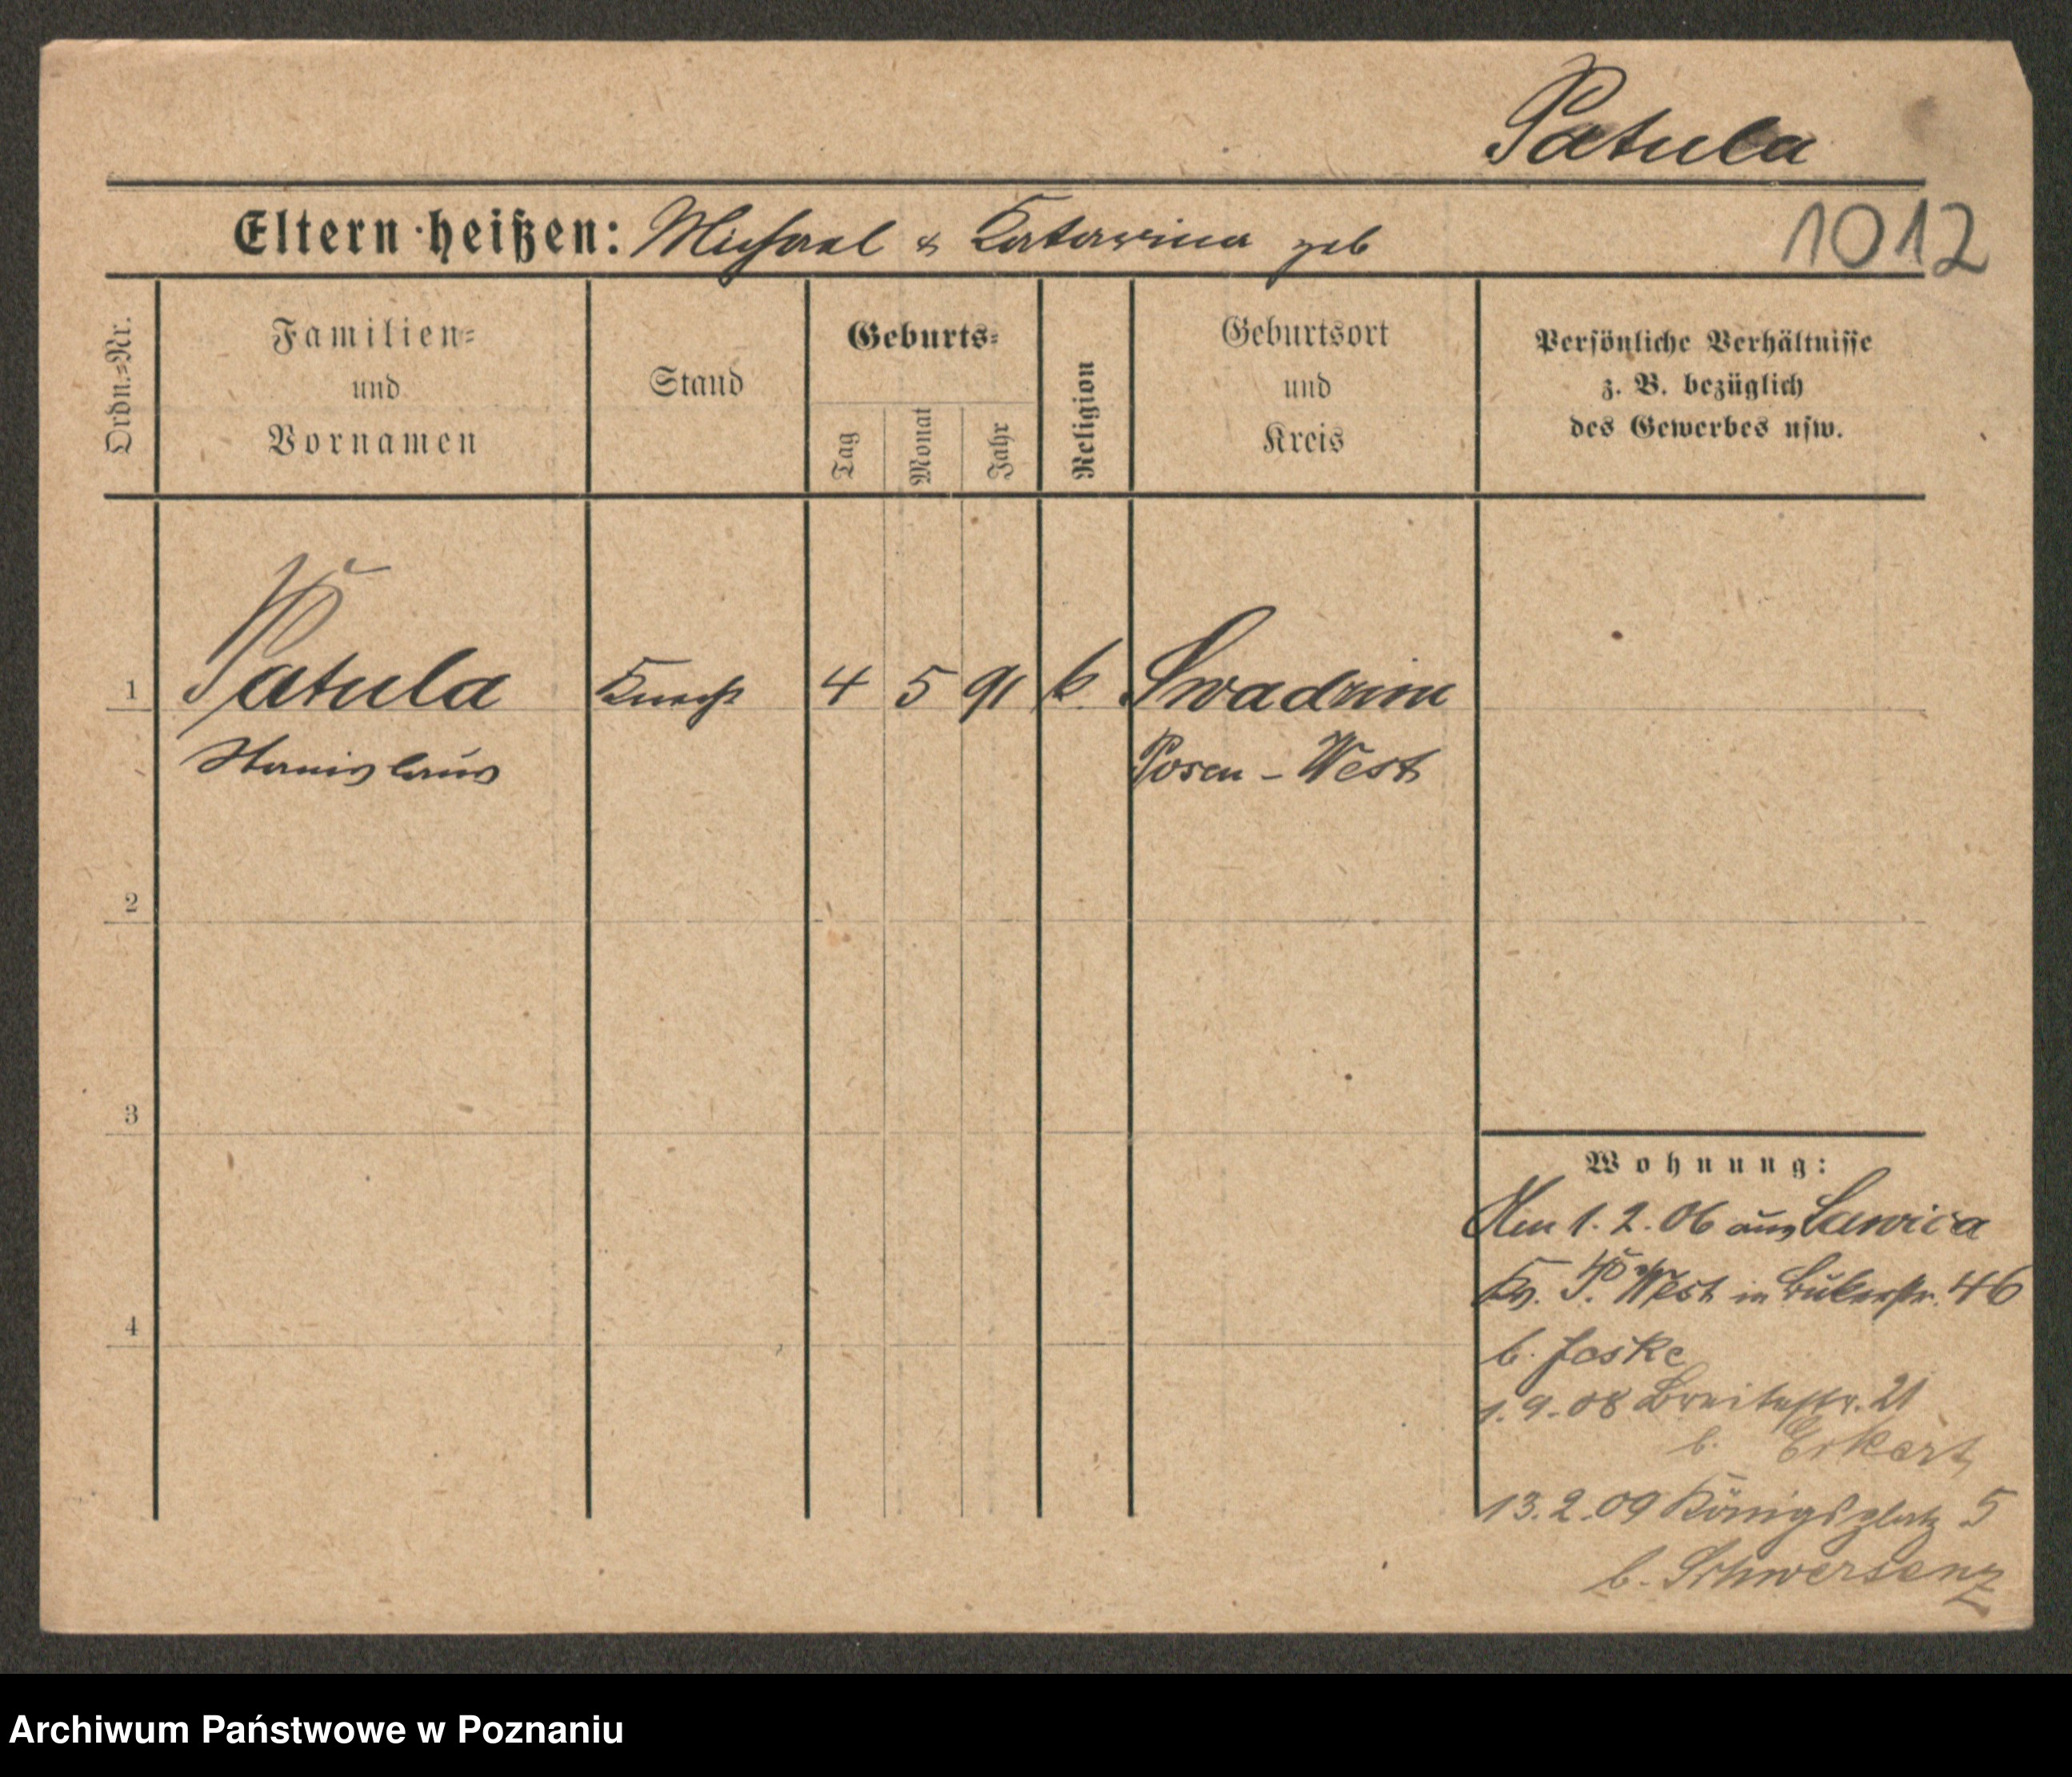 Patula
Eltern heißen: Michael & Katarina geb
1012
Ordn.-Nr.
Familien-
und
Vornamen
Stand
Geburts-
Tag
Monat
Jahr
Religion
Geburtsort
und
Kreis
Persönliche Verhältnisse
z. B. bezüglich
des Gewerbes usw.
1
Patula
Knecht
4
5
91
k.
Swadzim
Stanislaus
Posen - West
2
3
4
Wohnung:
1.2.06 aus Lawica
Kr. P. West in Bukerstr. 46
b. Joske
1.9.08 Breitestr. 21
b. Erkert
13.2.09 Königsplatz 5
b. Schwersenz
Archiwum Państwowe w Poznaniu